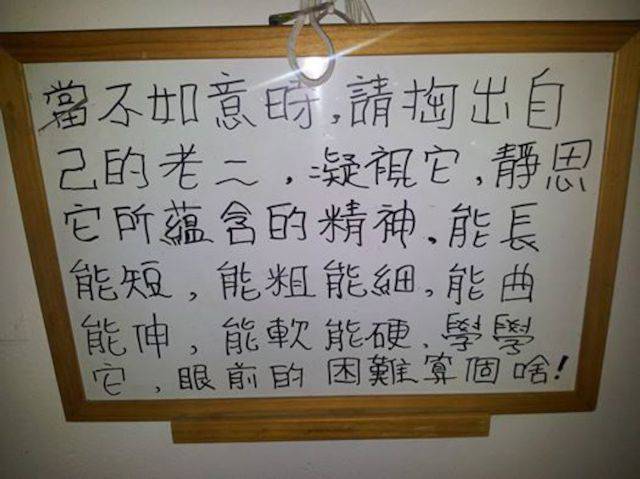 當不如意時,請掏出自
己的老二,凝視它,靜思
它所蘊含的精神,能長
能短,能粗能細,能曲
能伸,能軟能硬,學學
它,眼前的困難算個啥!